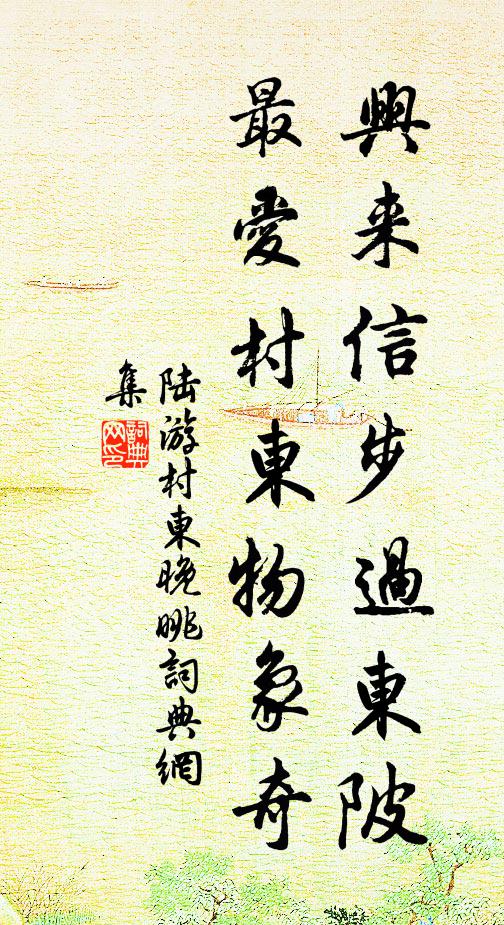 興来信步過東陂
最愛村東物象奇
陆游村東晚眺詞典網
集
詞典
网印